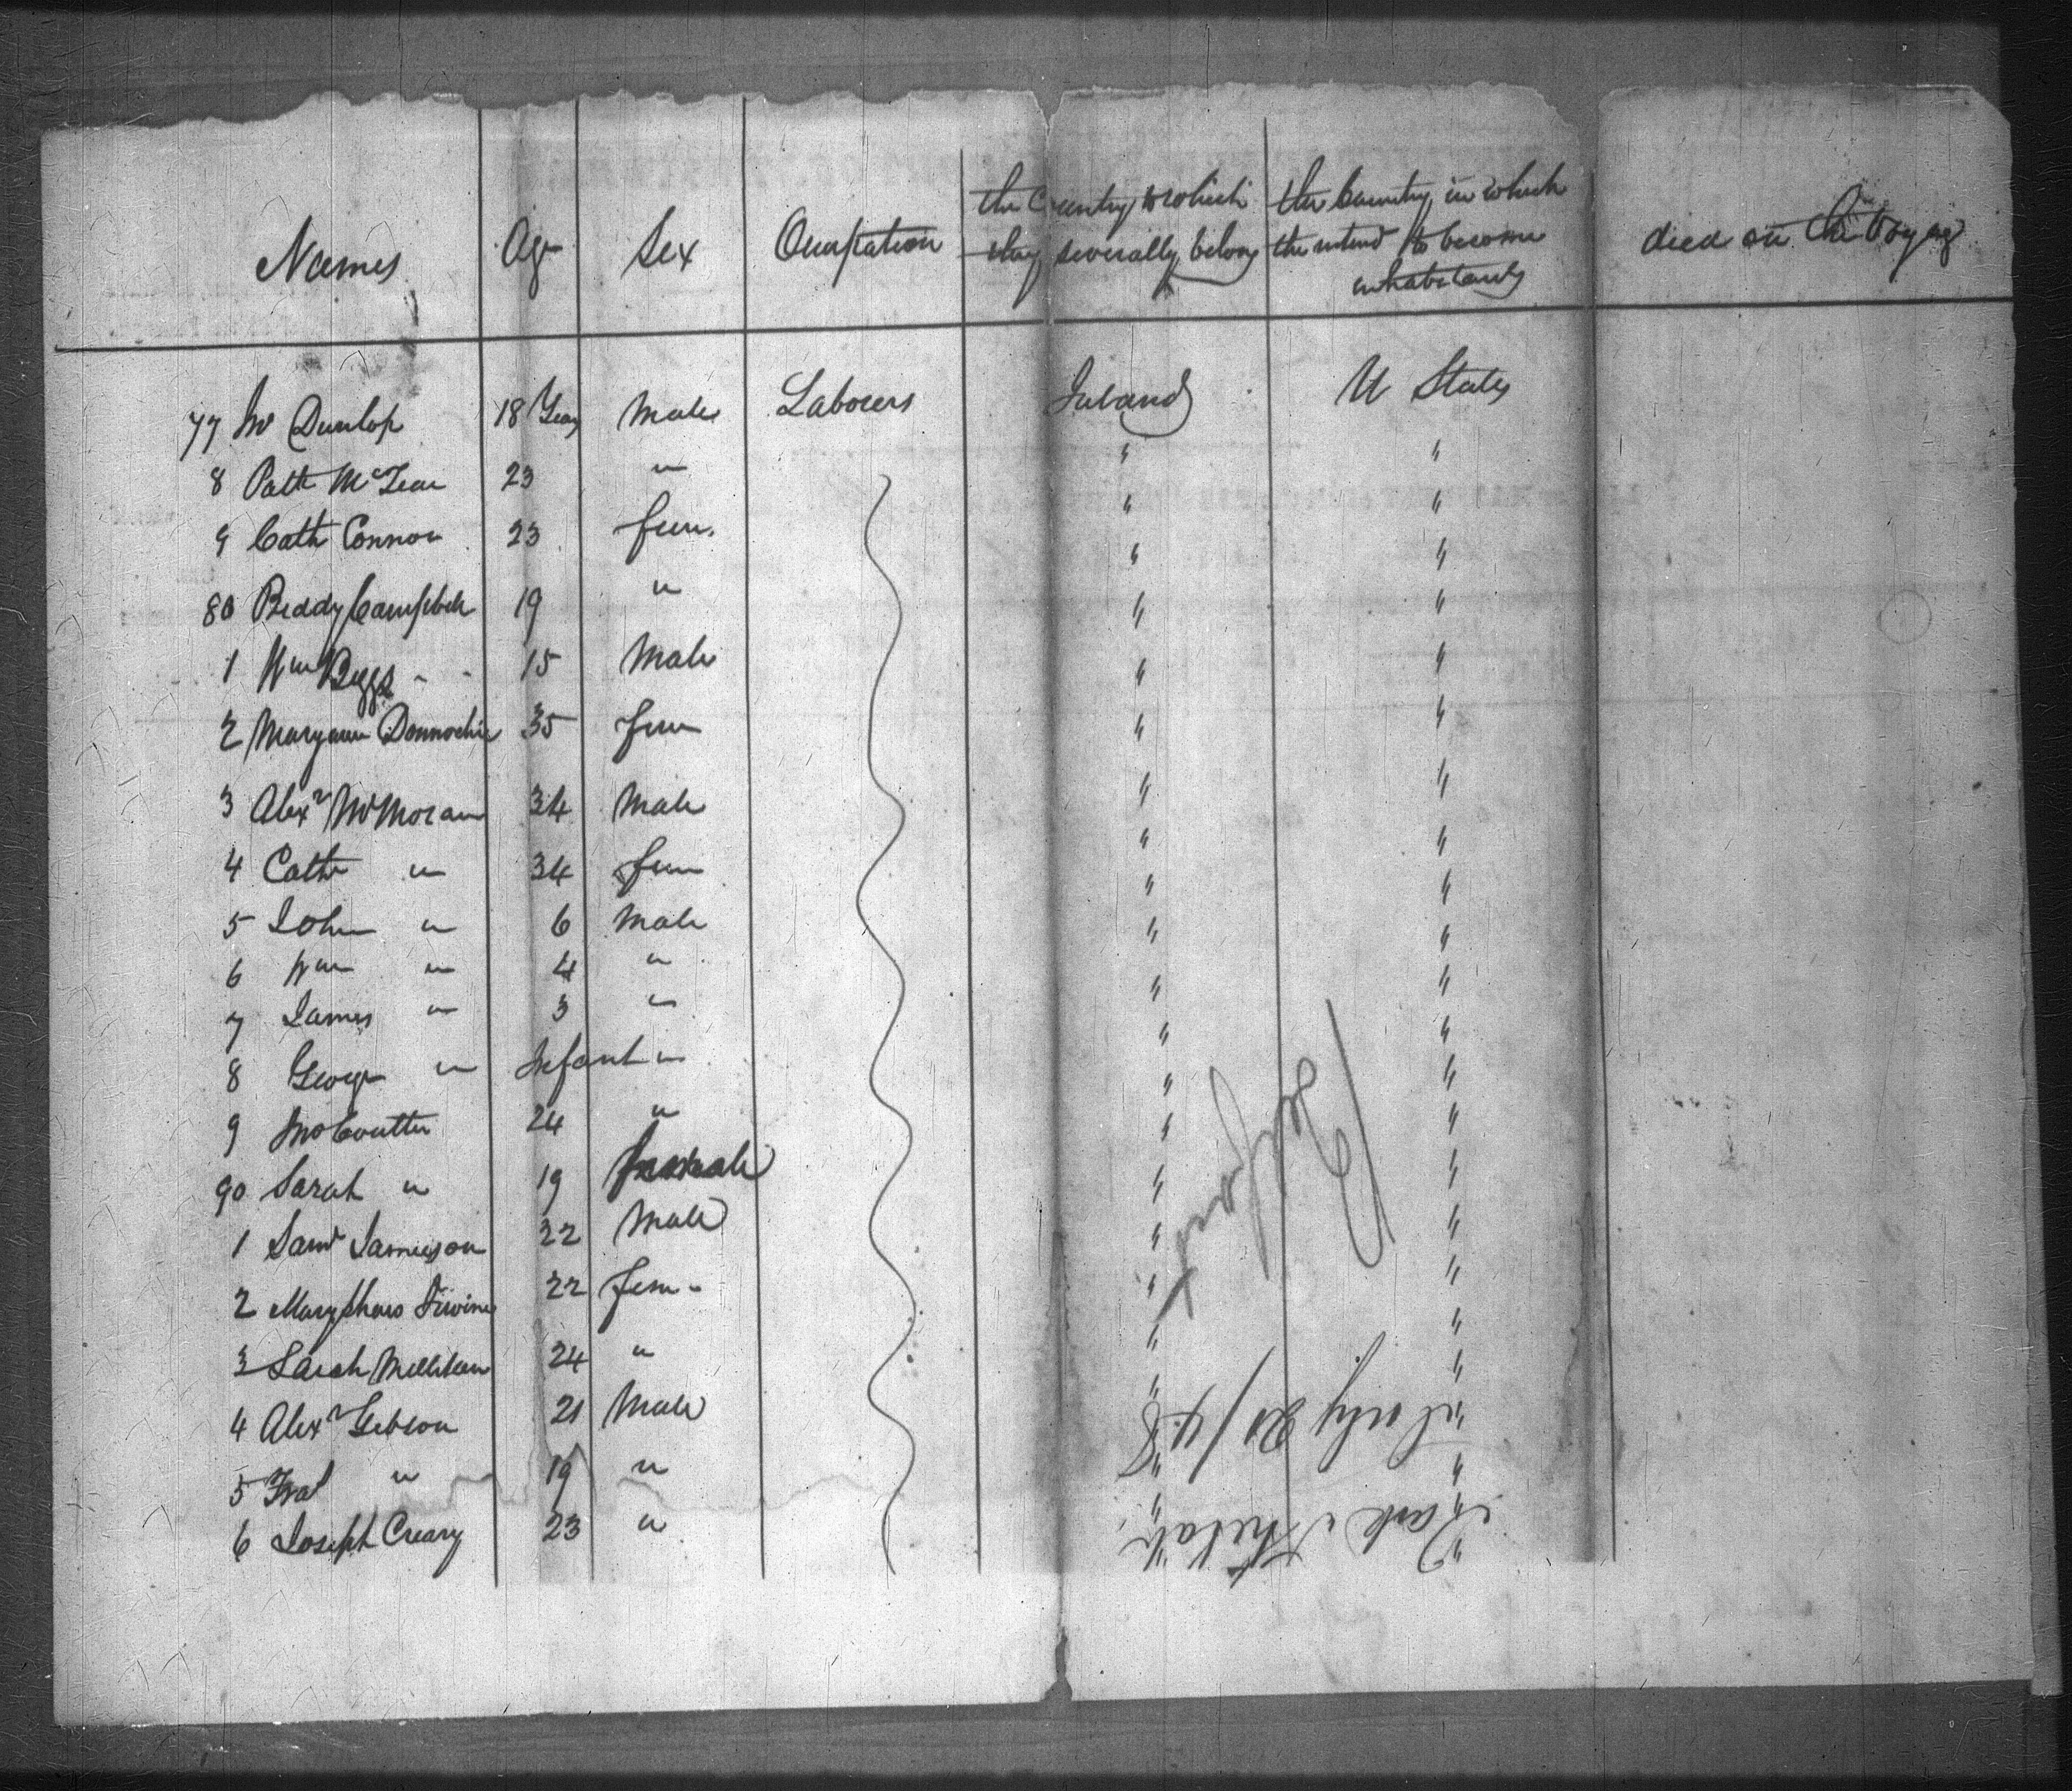 Names Age Sex Occupation the Country to which they severally belong the Country in which the intend to become inhabitants died on the Voyag
77 Dunlop 18 Years Male Laborers Ireland U States
8 Patk 23 " " "
9 Cath Connor 23 fem. " "
80 Biddy Campbell 19 " " "
1 Wm Beggs - - 15 Male " "
2 Maryann Donnochie 35 fem " "
3 Alexr McMoran 34 Male " "
4 Cathe " 34 fem " "
5 John " 6 Male " "
6 Wm " 4 " " "
7 James " 3 " " "
8 George " Infant " " "
9 Jno Coulter 24 " " "
90 Sarah " 19 female " "
1 Saml Jamieson 22 Male " "
2 Mary Irvine 22 fem - " "
3 Sarah Milliken 24 " " "
4 Alexr Gibson 21 Male " "
5 " 19 " " "
6 Joseph Creary 23 " " "
Belfast
July 20/48
Bark